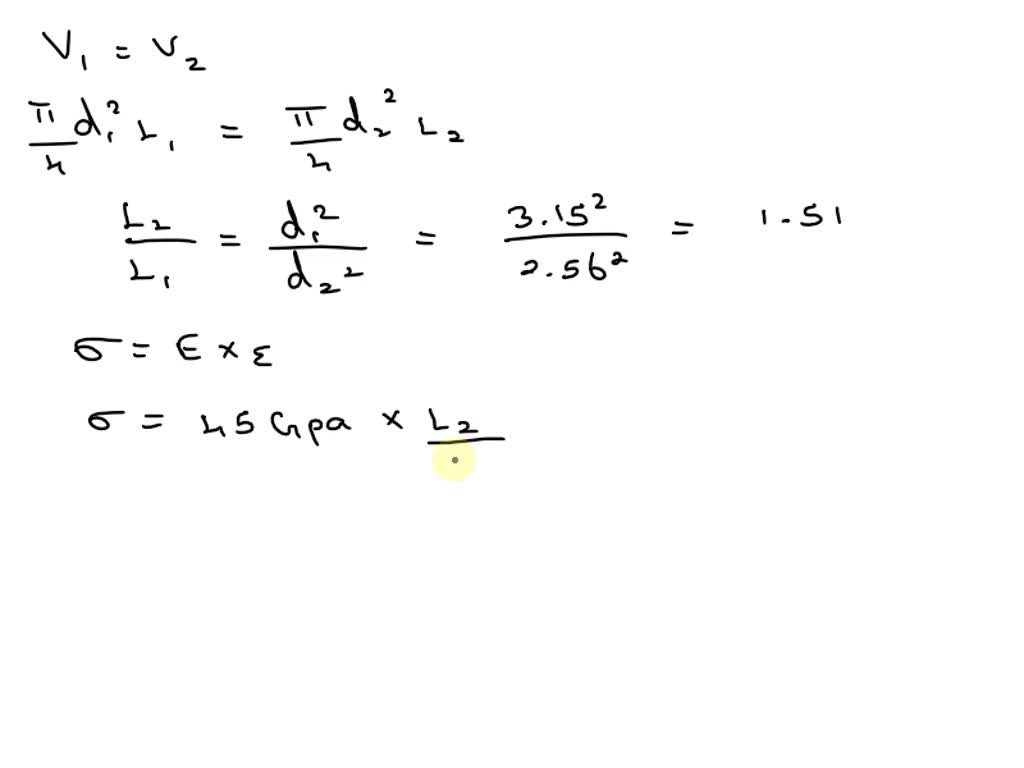 V₁ = V₂
π/4 d₁² L₁ = π/4 d₂² L₂
L₂/L₁ = d₁²/d₂² = 3.15²/2.56² = 1.51
σ = E × ε
σ = 45 Gpa × L₂